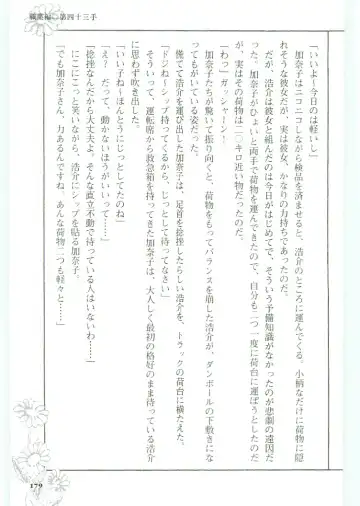 職業編 第四十三手
「いいよ～今日のは軽いし」
加奈子はニコニコしながら検品を済ませると、浩介のところに運んでくる。小柄なだけに荷物に隠
れそうな彼女だが、実は彼女、かなりの力持ちであったのだ。
だが、浩介は彼女と組んだのは今日がはじめてで、そういう予備知識がなかったのが悲劇の遠因だ
った。加奈子がひょいと両手で荷物を運んできたので、自分も二つ一度に荷台に運ぼうとしたのだ
が、実はその荷物は二〇キロ近い物だったのだ。
「わっ」ガッシャーン！
加奈子たちが驚いて振り向くと、荷物をもってバランスを崩した浩介が、ダンボールの下敷きにな
ってもがいている姿だった。
慌てて浩介を運び出した加奈子は、足首を捻挫したらしい浩介を、トラックの荷台に横たえた。
「ドジね～シップ持ってくるから、じっとして待ってなさい」
そういって、運転席から救急箱を持ってきた加奈子は、大人しく最初の格好のまま待っている浩介
に思わず吹き出した。
「いい子ね～ほんとうにじっとしてたのね」
「えっ？ だって、動かないほうがいいって……」
「捻挫なんだから大丈夫よ。そんな直立不動で待っている人はいないわ……」
にこにこっと笑いながら、浩介にシップを貼る加奈子。
「でも加奈子さん、力あるんですね。あんな荷物二つも軽々と……」
179